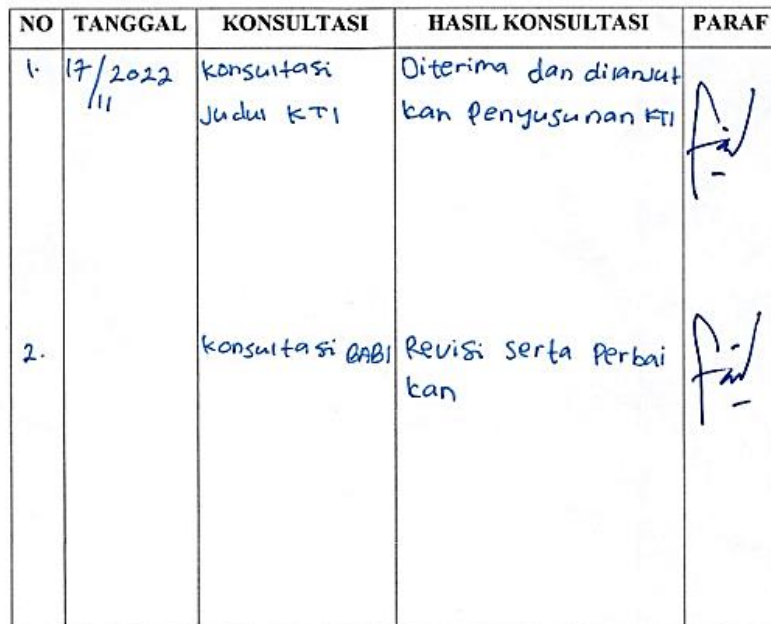 NO TANGGAL KONSULTASI HASIL KONSULTASI PARAF
1. 17/11/2022 Konsultasi Diterima dan dilanjut
Judul KTI kan Penyusunan KTI
2. Konsultasi BAB I Revisi serta Perbai
kan